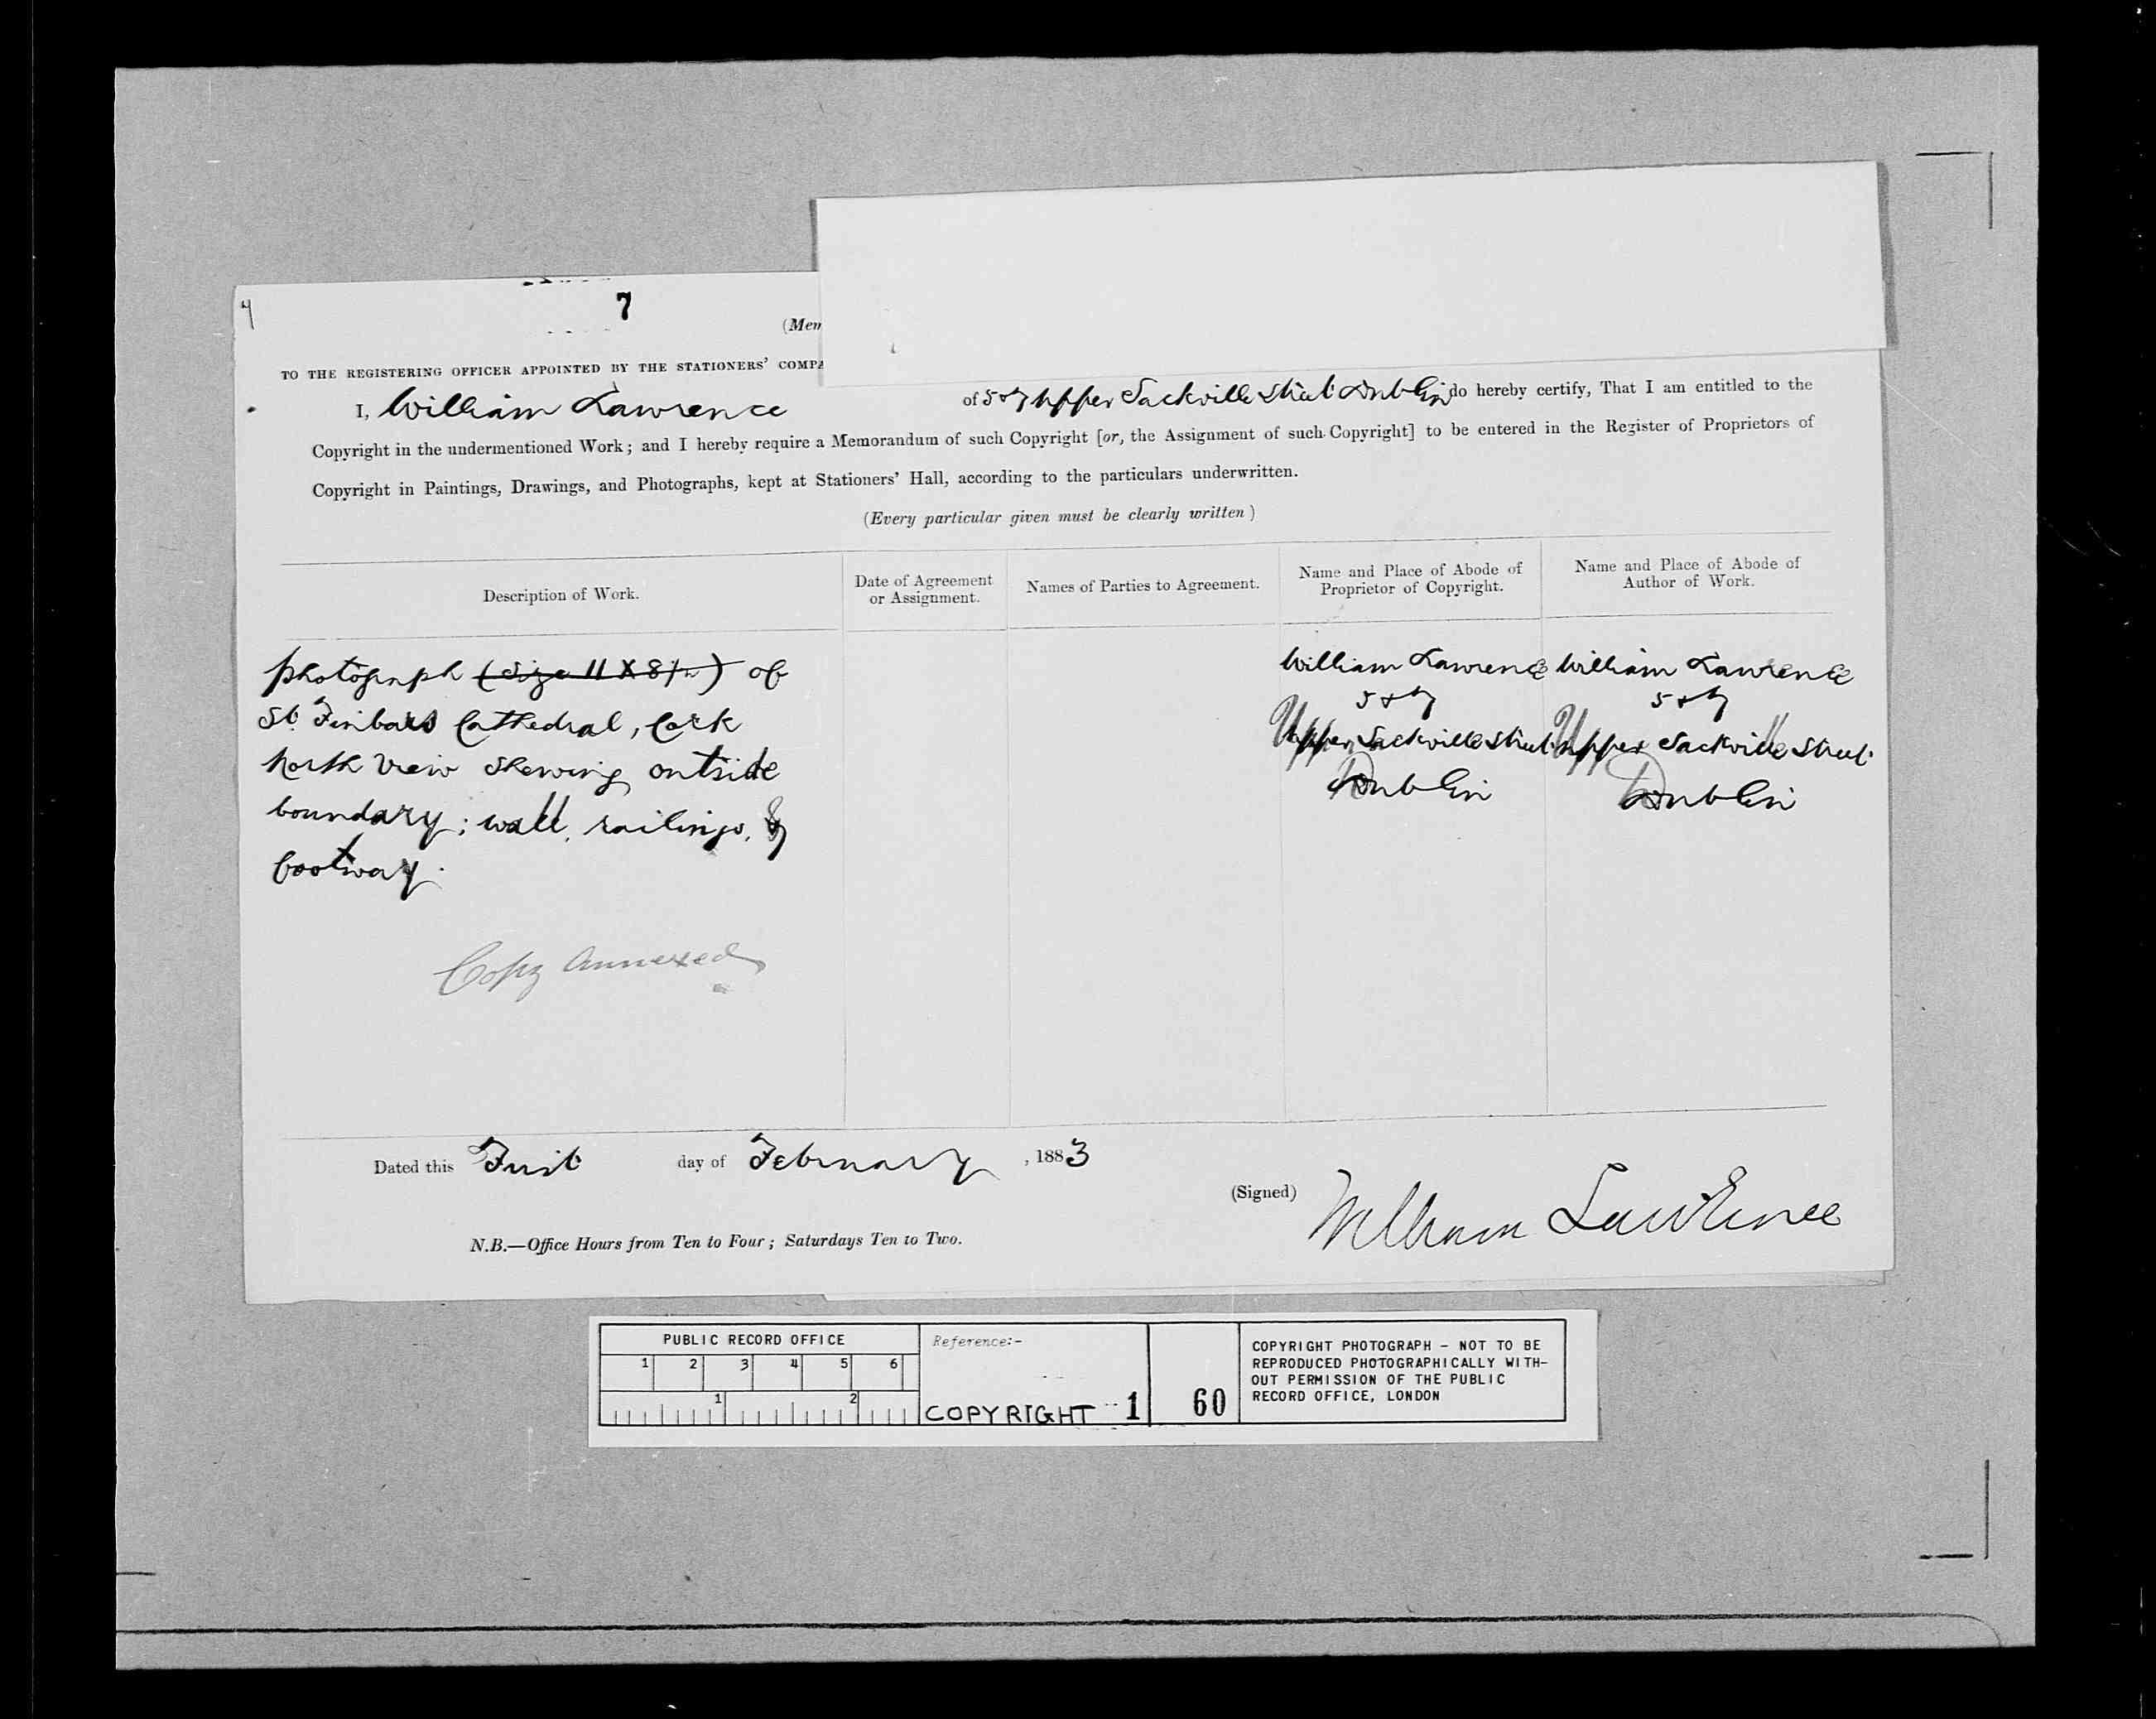 7
(Mem
TO THE REGISTERING OFFICER APPOINTED BY THE STATIONERS' COMPA
I, William Lawrence of 5 & 7 Upper Sackville Street Dublin do hereby certify, That I am entitled to the
Copyright in the undermentioned Work; and I hereby require a Memorandum of such Copyright [or, the Assignment of such Copyright] to be entered in the Register of Proprietors of
Copyright in Paintings, Drawings, and Photographs, kept at Stationers' Hall, according to the particulars underwritten.
(Every particular given must be clearly written)
Description of Work.
Date of Agreement
or Assignment.
Names of Parties to Agreement.
Name and Place of Abode of
Proprietor of Copyright.
Name and Place of Abode of
Author of Work.
Photograph (Size 11 X 8½) of
St. Finbars Cathedral, Cork
North View shewing outside
boundary; wall, railings, &
footway.
Copy Annexed
William Lawrence
5 & 7
Upper Sackville Street
Dublin
William Lawrence
5 & 7
Upper Sackville Street
Dublin
Dated this First day of February, 1883
(Signed) William Lawrence
N.B.—Office Hours from Ten to Four; Saturdays Ten to Two.
PUBLIC RECORD OFFICE
1 2 3 4 5 6
1 2
Reference:-
COPYRIGHT 1 60
COPYRIGHT PHOTOGRAPH - NOT TO BE
REPRODUCED PHOTOGRAPHICALLY WITH-
OUT PERMISSION OF THE PUBLIC
RECORD OFFICE, LONDON